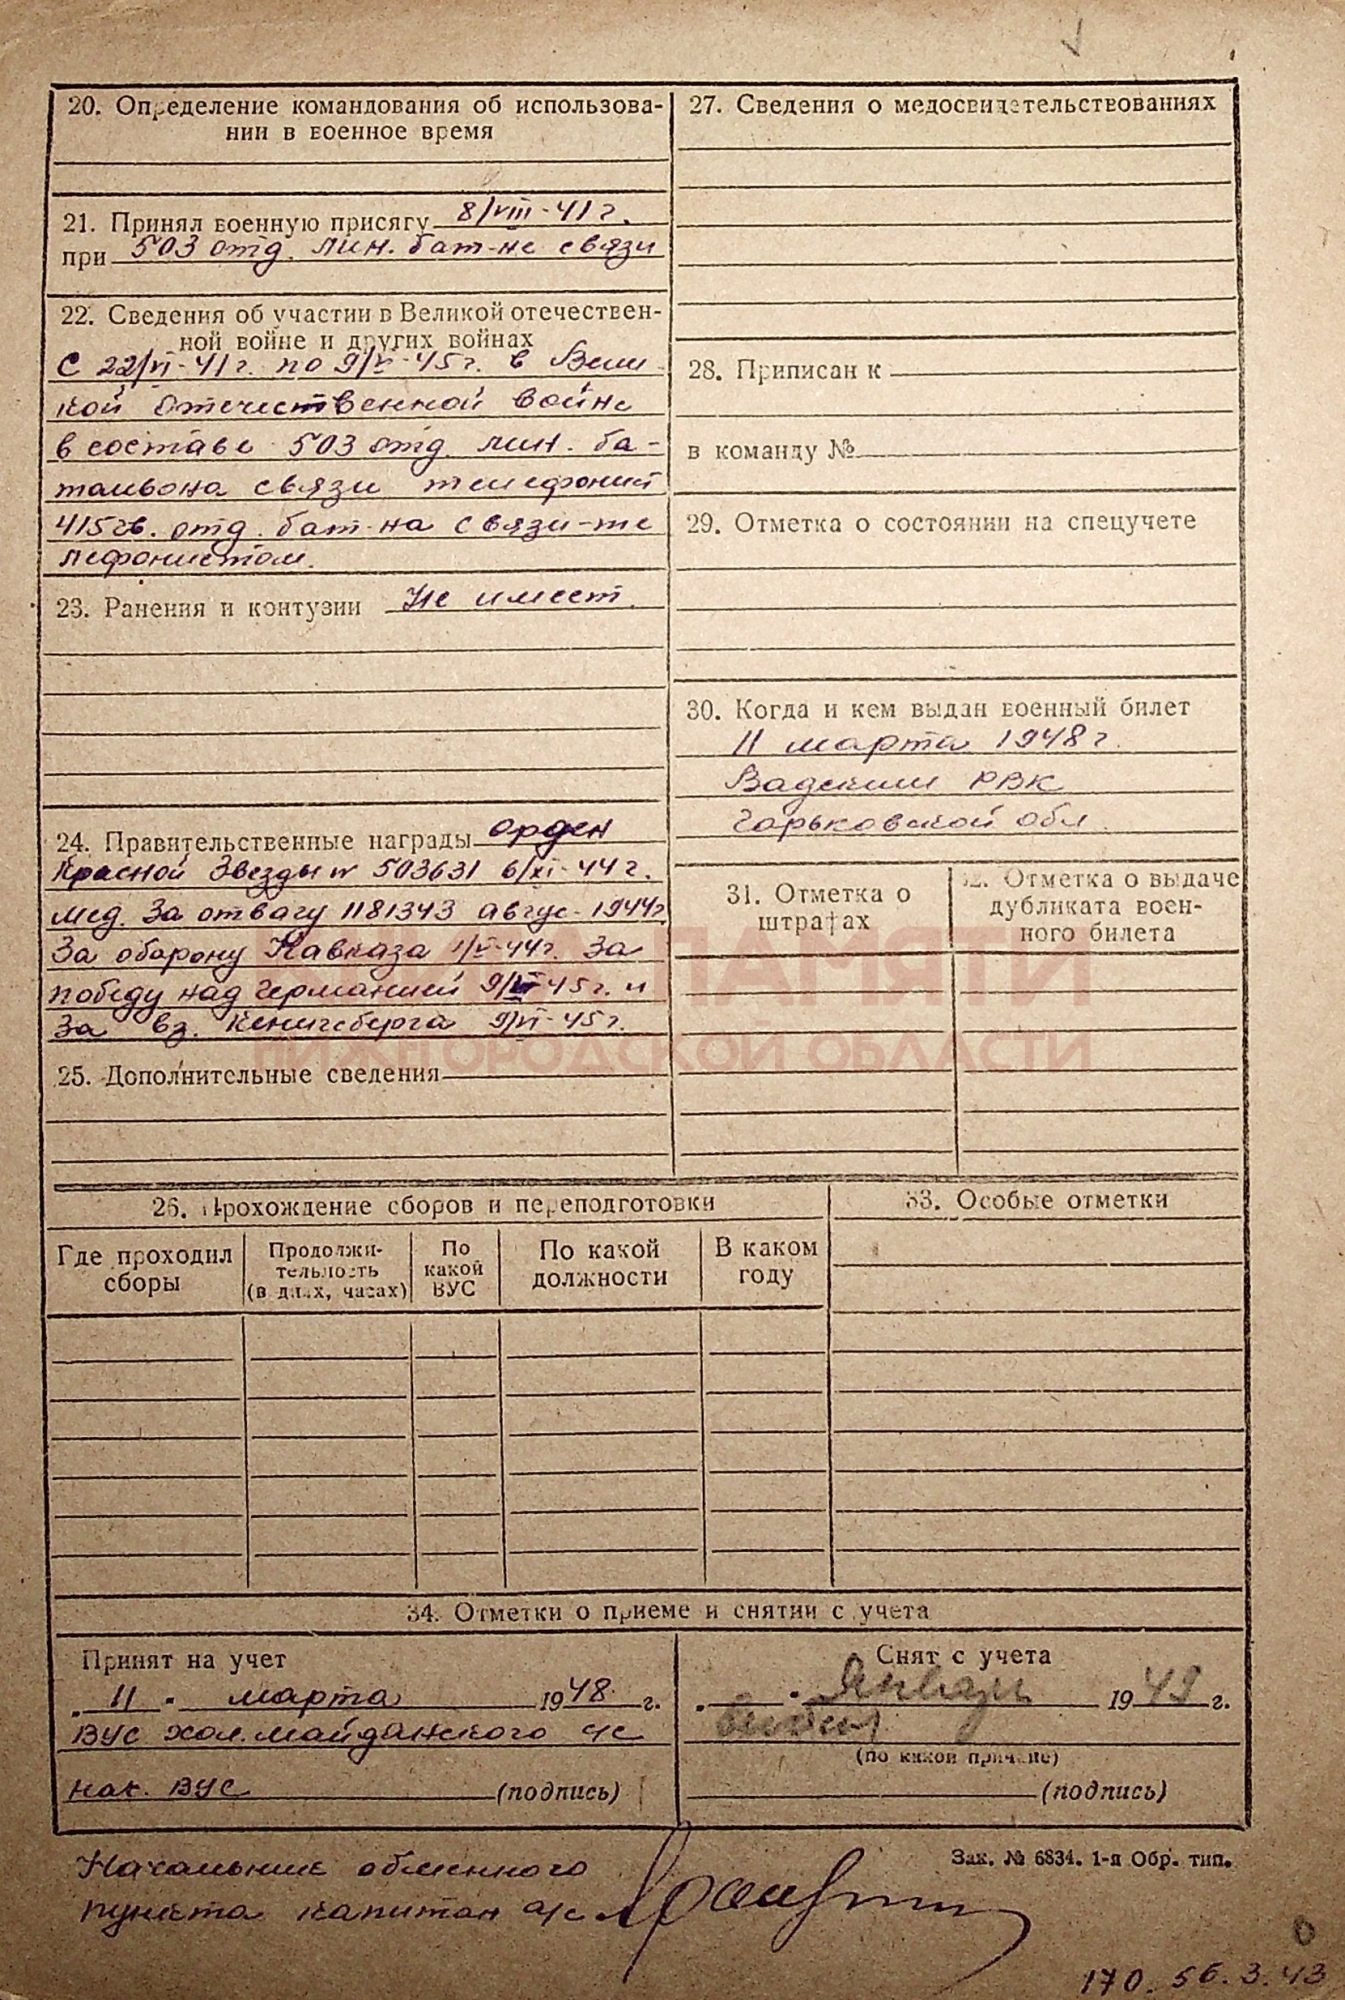 20. Определение командования об использова-
нии в военное время
21. Принял военную присягу 8/VIII-41 г.
при 503 отд. лин. бат-не связи
22. Сведения об участии в Великой отечествен-
ной войне и других войнах
С 22/VI-41 г. по 9/V-45 г. в Вели
кой отечественной войне
в составе 503 отд. лин. ба-
тальона связи телефонист
415 гв. отд. бат-на связи-те
лефонистом.
23. Ранения и контузии Не имеет.
24. Правительственные награды орден
Красной Звезды № 503631 6/XI-44 г.
мед. За отвагу 1181343 авгус-1944г
За оборону Кавказа 1/V-44г. За
победу над Германией 9/VI-45 г. и
За вз. Кенигсберга 9/VI-45 г.
25. Дополнительные сведения
27. Сведения о медосвидетельствованиях
28. Приписан к
в команду №
29. Отметка о состоянии на спецучете
30. Когда и кем выдан военный билет
11 марта 1948 г.
Вадским РВК
Горьковской обл.
31. Отметка о
штрафах
32. Отметка о выдаче
дубликата воен-
ного билета
ПАМЯТИ
НИЖЕГОРОДСКОЙ ОБЛАСТИ
26. Прохождение сборов и переподготовки
Где проходил
сборы
Продолжи-
тельность
(в днях, часах)
По
какой
ВУС
По какой
должности
В каком
году
33. Особые отметки
34. Отметки о приеме и снятии с учета
Принят на учет
" 11 " марта 1948 г.
ВУС хол. майданского с/с
нач. ВУС (подпись)
Снят с учета
" " Январь 1949 г.
выбыл
(по какой причине)
(подпись)
Начальник обменного
пункта капитан а/с
Зак. № 6834. 1-я Обр. тип.
170. 56. 3. 43